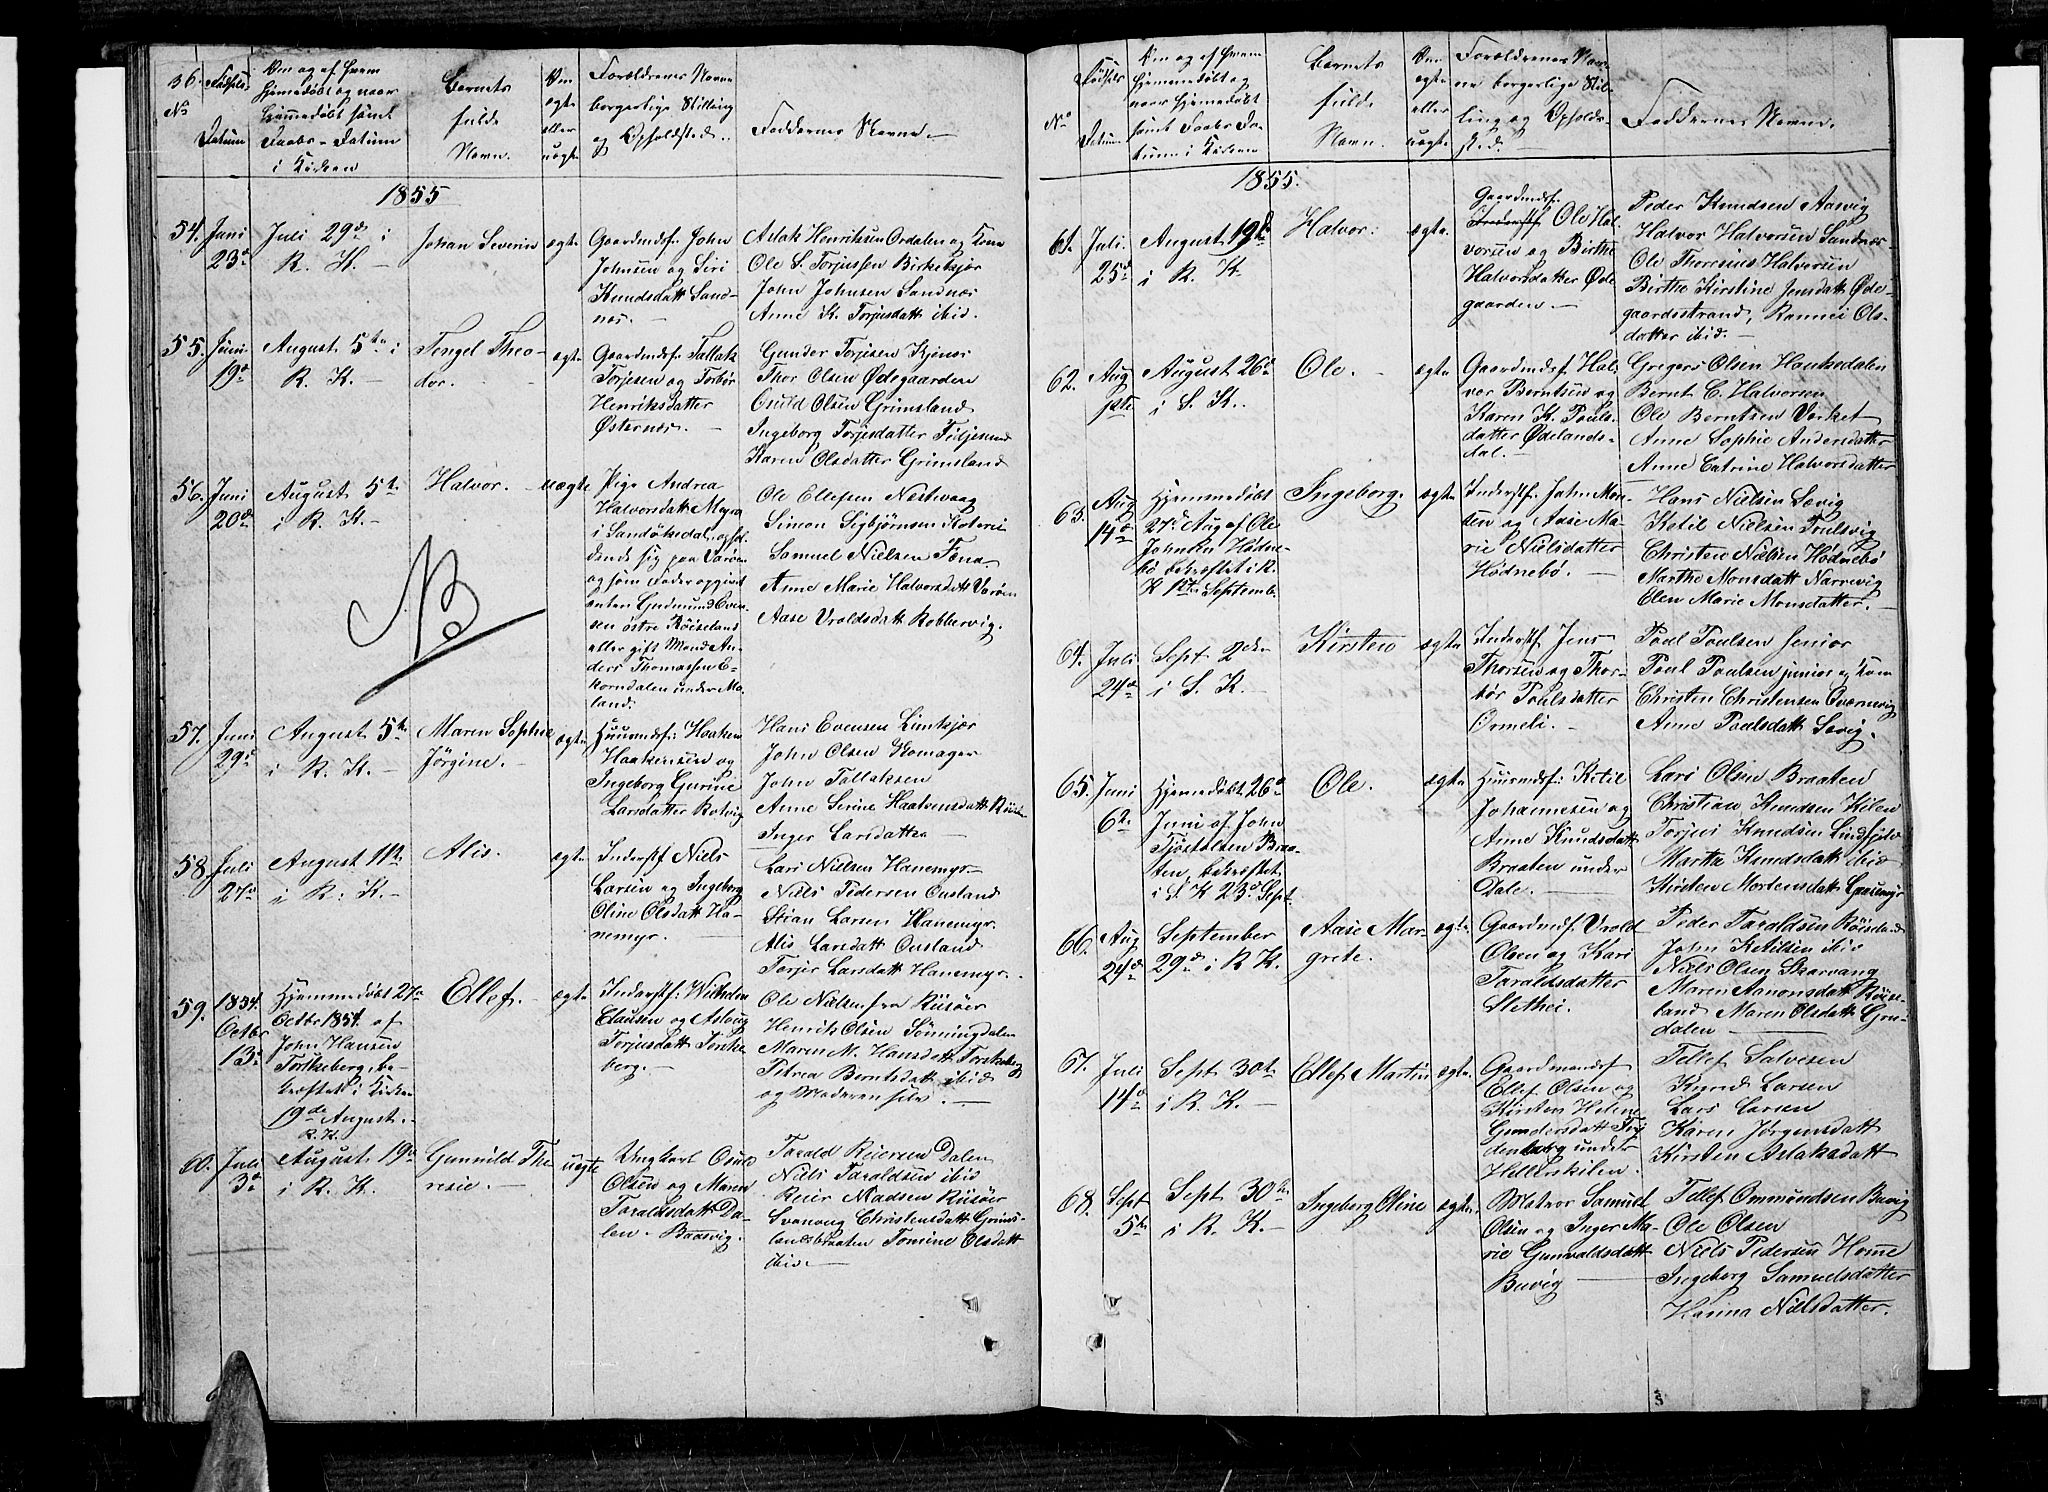 36.
No
Fødsels-
Datum
Om og af hvem
hjemmedøbt og naar
hjemmedøbt samt
Daabs-Datum
i Kirken
Barnets
fulde
Navn.
Om
ægte
eller
uægte
Forældrenes Navne
borgerlige Stilling
og Opholdsted.
Faddernes Navne.
1855
54.
Juni
23d
Juli 29de i
R. K.
Johan Severin
ægte
Gaardmdsf. John
Johnsen og Siri
Knudsdatt Sand-
næs.
Aslak Henriksen Ordalen og Kone
Ole S. Torjussen Birketsjør
John Johnsen Sandnæs
Anne K. Torjusdatt ibid.
55.
Juni
19d
August 5te i
R. K.
Tengel Theo-
dor.
ægte
Gaardmdsf. Tallak
Torjesen og Torbør
Henriksdatter
Østernæs.
Gunder Torjesen
Thor Olsen Ødegaarden
Osuld Olsen Grimsland
Ingeborg Torjesdatter
Karen Olsdatter Grimsland
56.
Juni
20de
August 5te
i R. K.
Halvor.
uægte
Pige Andrea
Halvorsdatt Myra
i Sandøkedal, ophol-
dende sig paa Varøen
og som Fader opgivet
enten Gudmund Even-
sen østre Røiseland
eller gift Mand An-
ders Thomassen E-
korndalen under Mo-
land.
Ole Ellefsen Nestvaag
Simon Sigbjørnsen
Samuel Nielsen
Anne Marie Halvorsdatt Varøen
Aase Vroldsdatt Robbervig.
NB
57.
Juni
29d
August 5te
i R. K.
Maren Sophie
Jørgine.
ægte
Huusmdsf: Haaken
Haakensen og
Ingeborg Gurine
Larsdatter Rotvig
Hans Evensen Limkjær
John Olsen Komager
John Tallaksen
Anne Serine
Inger Larsdatter
58
Juli
27de
August 11te
i R. K.
Alis.
ægte
Inderstf Niels
Larsen og Ingeborg
Oline Olsdatt Ha-
nemyr.
Lars Nielsen Hanemyr
Niels Pedersen Ousland
Stian Larsen Hanemyr.
Alis Larsdatt Ousland
Torjer Larsdatt Hanemyr.
59.
1854.
Octbr
13d
Hjemmedøbt 27de
Octbr 1854 af
John Hansen
Torskeberg, be-
kræftet i Kirken
19de August.
R. K.
Ellef.
ægte
Inderstf: Wilhelm
Clausen og Asborg
Torjusdatt Torske-
berg.
Ole Nielsen fra Risøer
Henrik Olsen Sønningdalen
Maren M. Hansdatt Torskeberg
Petrea Berntsdatt ibid
og Moderen selv.
60.
Juli
3d
August 19de
i R. K.
Gunvild The
resie.
uægte
Ungkarl Osul
Olsen og Maren
Taraldsdatt Da-
len. Baasvig.
Tarald Reiersen Dalen
Niels Taraldsen ibid
Reier Madsen Risøer
Svanaug Christensdatt Grims-
landsbraaten Tomine Olsdatt
ibid.
No
Fødsels
Datum
Om og af hvem
hjemmedøbt og
naar hjemmedøbt
samt Daabs Da-
tum i Kirken
Barnets
fulde
Navn.
Om
ægte
eller
uægte
Forældrenes Nav-
ne borgerlige Stil-
ling og Opholds-
sted.
Faddernes Navne.
1855.
61.
Juli.
25d
August 19de
i R. K.
Halvor.
ægte
Gaardmdsf.
Inderstf Ole Hal
vorsen og Birthe
Halvorsdatter Øde
gaarden.
Peder Knudsen Aasvig
Halvor Halvorsen Sandnæs
Ole Theresius Halvorsen
Birthe Kirstine Jensdatt Øde-
gaardsstrand, Rannei Ols-
datter ibid.
62.
Aug
1ste
August 26de
i S. K.
Ole.
ægte
Gaardmdsf Hal
vor Berntsen og
Karen K. Pouls-
datter Ødelands-
dal.
Gregers Olsen Haukedalen
Bernt C. Halvorsen
Ole Berntsen Verket
Anne Sophie Andersdatter
Anne Catrine Halvorsdatter
63.
Aug
14de
Hjemmedøbt
27d Aug af Ole
Johnsen Hødne-
bø bekræftet i R.
K 1ste September
Ingeborg.
ægte
Inderstf. John Mon-
sen og Aase Ma-
rie Nielsdatter
Hødnebø.
Hans Nielsen Sævig
Ketil Nielsen Poulsvig
Christen Nielsen Hødnebø
Marthe Monsdatt Narrevig
Elen Marie Monsdatter.
64.
Juli
24de
Sept 2den
i S. K.
Kirsten
ægte
Inderstf. Jens
Thorsen og Thor-
bør Poulsdatter
Ormeli.
Poul Poulsen Senior
Poul Poulsen junior og Kone
Christen Christensen Qværnvig
Anne Poulsdatt Sevig.
65.
Juni
6te
Hjemmedøbt 26de
Juni af John
Tjøstolsen Braa-
ten, bekræftet
i S. K 23d Sept.
Ole.
ægte
Huusmdsf: Ketil
Johannesen og
Anne Knudsdatt
Braaten under
Dale.
Lars Olsen Braaten
Christian Knudsen Kilen
Torjus Knudsen
Martha Knudsdatt ibid
Kirsten Mortensdatt
66.
Aug
24de
September
29de i R K.
Aase Mar-
grete.
ægte
Gaardmdsf. Vrold
Olsen og Kari
Taraldsdatter
Slethei.
Peder Taraldsen Røiseland
John Ketilsen ibid
Niels Olsen Skarvang
Maren Aanonsdatt Røise-
land Maren Olsdatt Gru-
dalen
67.
Juli
14de
Sept 30te
i R. K.
Ellef Martin
ægte.
Gaardmandsf
Ellef Olsen og
Kirsten Helene
Gundersdatt
under
Hellerskilen.
Tellef Salvesen
Knud Larsen
Lars Larsen
Karen Jørgensdatt
Kirsten Aslaksdatt
68.
Sept
5te
Sept 30te
i R. K.
Ingeborg Oline
ægte.
Matros Samuel
Olsen og Inger Ma-
rie Gunvaldsdatt
Buvig
Tellef Ommundsen Buvig
Ole Olsen
Niels Pedersen Home
Ingeborg Samuelsdatter
Hasina Nielsdatter.
5